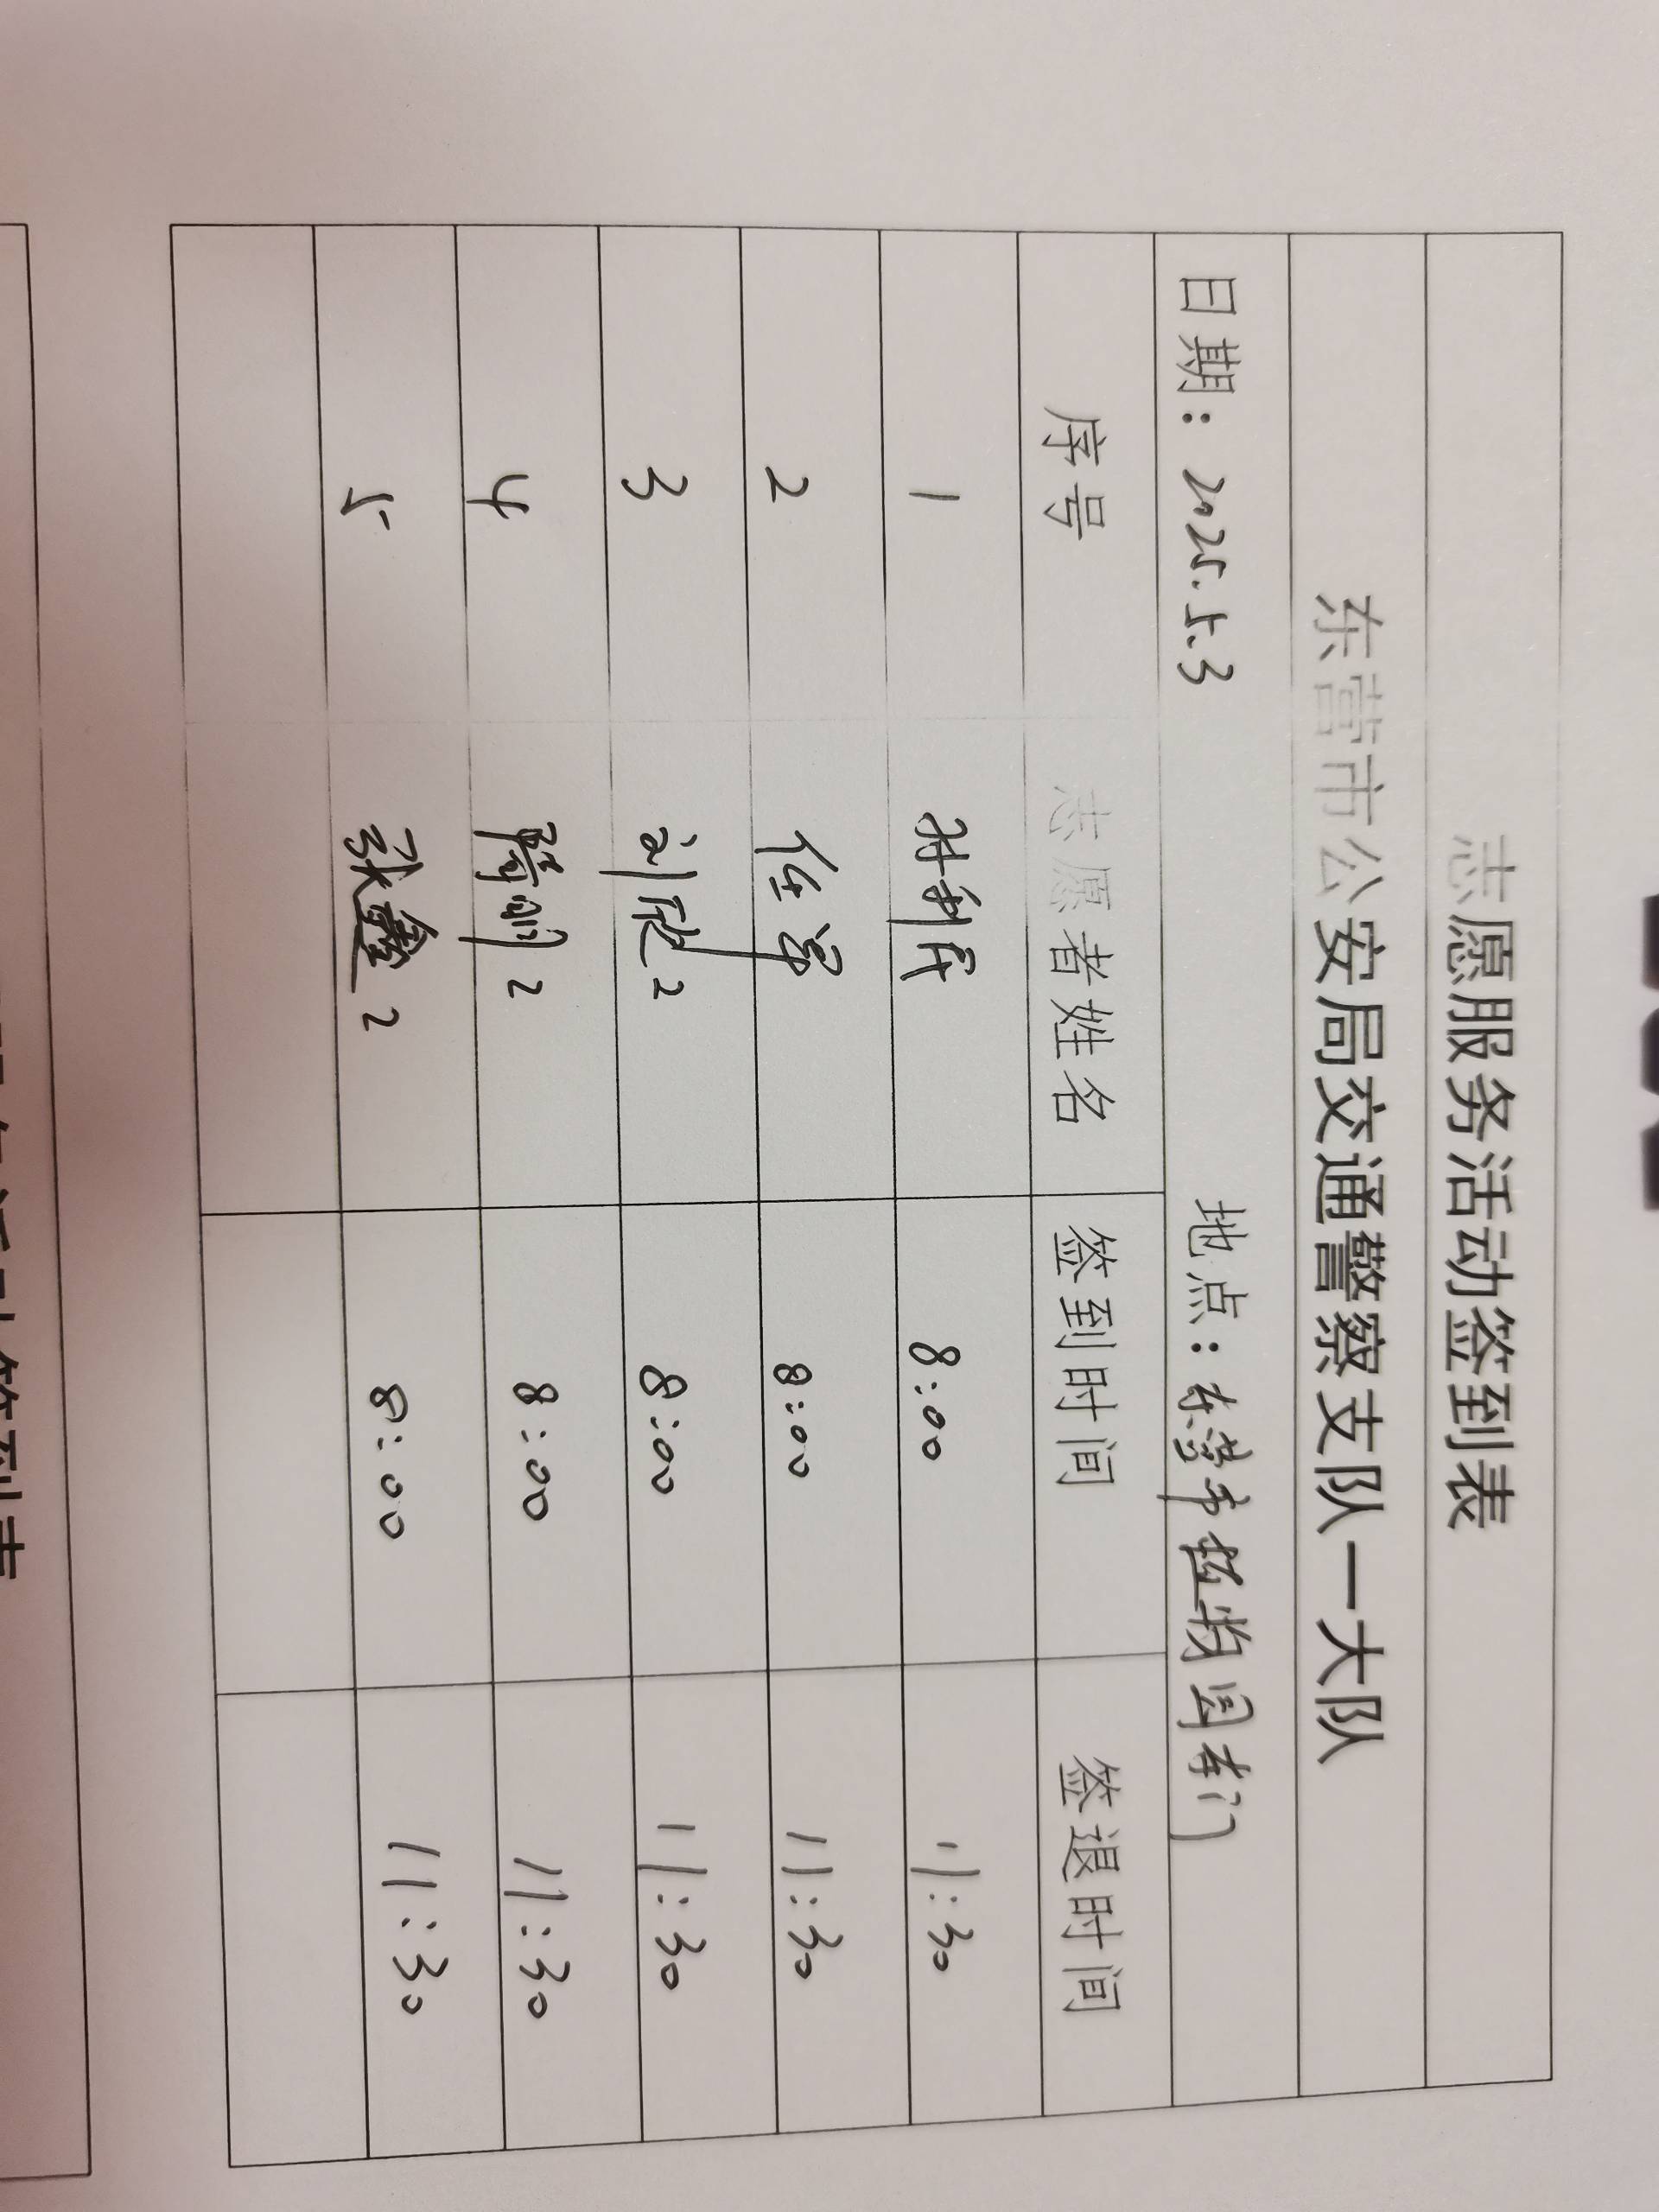 志愿服务活动签到表
东营市公安局交通警察支队一大队
日期：2025.5.3 地点：东营市植物园东门
序号 志愿者姓名 签到时间 签退时间
1 8:00 11:30
2 任军 8:00 11:30
3 刘欣2 8:00 11:30
4 隋刚2 8:00 11:30
5 张鑫2 8:00 11:30